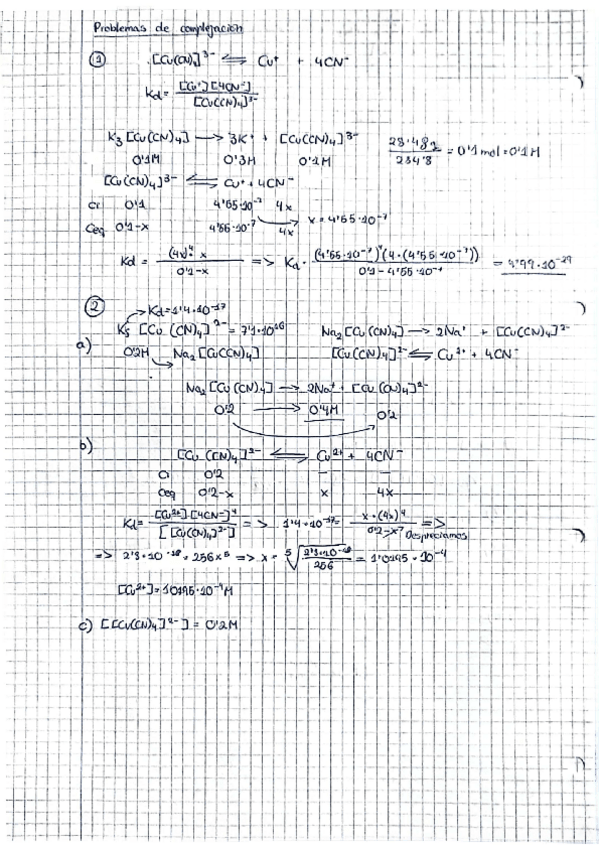 Problemas de complejación
① [Cu(CN)4]3- ⇌ Cu+ + 4CN-
Kd = [Cu+][4CN-] / [Cu(CN)4]3-
K3[Cu(CN)4] → 3K+ + [Cu(CN)4]3-
0'1M 0'3M 0'1M
28'48g / 284'8 = 0'1 mol = 0'1M
[Cu(CN)4]3- ⇌ Cu+ + 4CN-
Ci 0'1 4'55·10-7 4x
Ceq 0'1-x 4'55·10-7 4x → x = 4'55·10-7
Kd = (4x)4·x / 0'1-x => Kd = (4'55·10-7)4(4·(4'55·10-7)) / 0'1-4'55·10-7 = 4'99·10-29
② → Kd=1'4·10-17
Ks [Cu(CN)4]2- = 7'1·1016 Na2[Cu(CN)4] → 2Na+ + [Cu(CN)4]2-
a) 0'2M → Na2[Cu(CN)4] [Cu(CN)4]2- ⇌ Cu2+ + 4CN-
Na2[Cu(CN)4] → 2Na+ + [Cu(CN)4]2-
0'2 → 0'4M 0'2
b) [Cu(CN)4]2- ⇌ Cu2+ + 4CN-
Ci 0'2 - -
Ceq 0'2-x x 4x
Kd = [Cu2+]·[4CN-]4 / [[Cu(CN)4]2-] => 1'4·10-17 = x·(4x)4 / 0'2-x => Despreciamos
=> 2'8·10-18 = 256x5 => x = 5√(2'8·10-18 / 256) = 1'0195·10-4
[Cu2+] = 1'0195·10-4M
c) [[Cu(CN)4]2-] = 0'2M